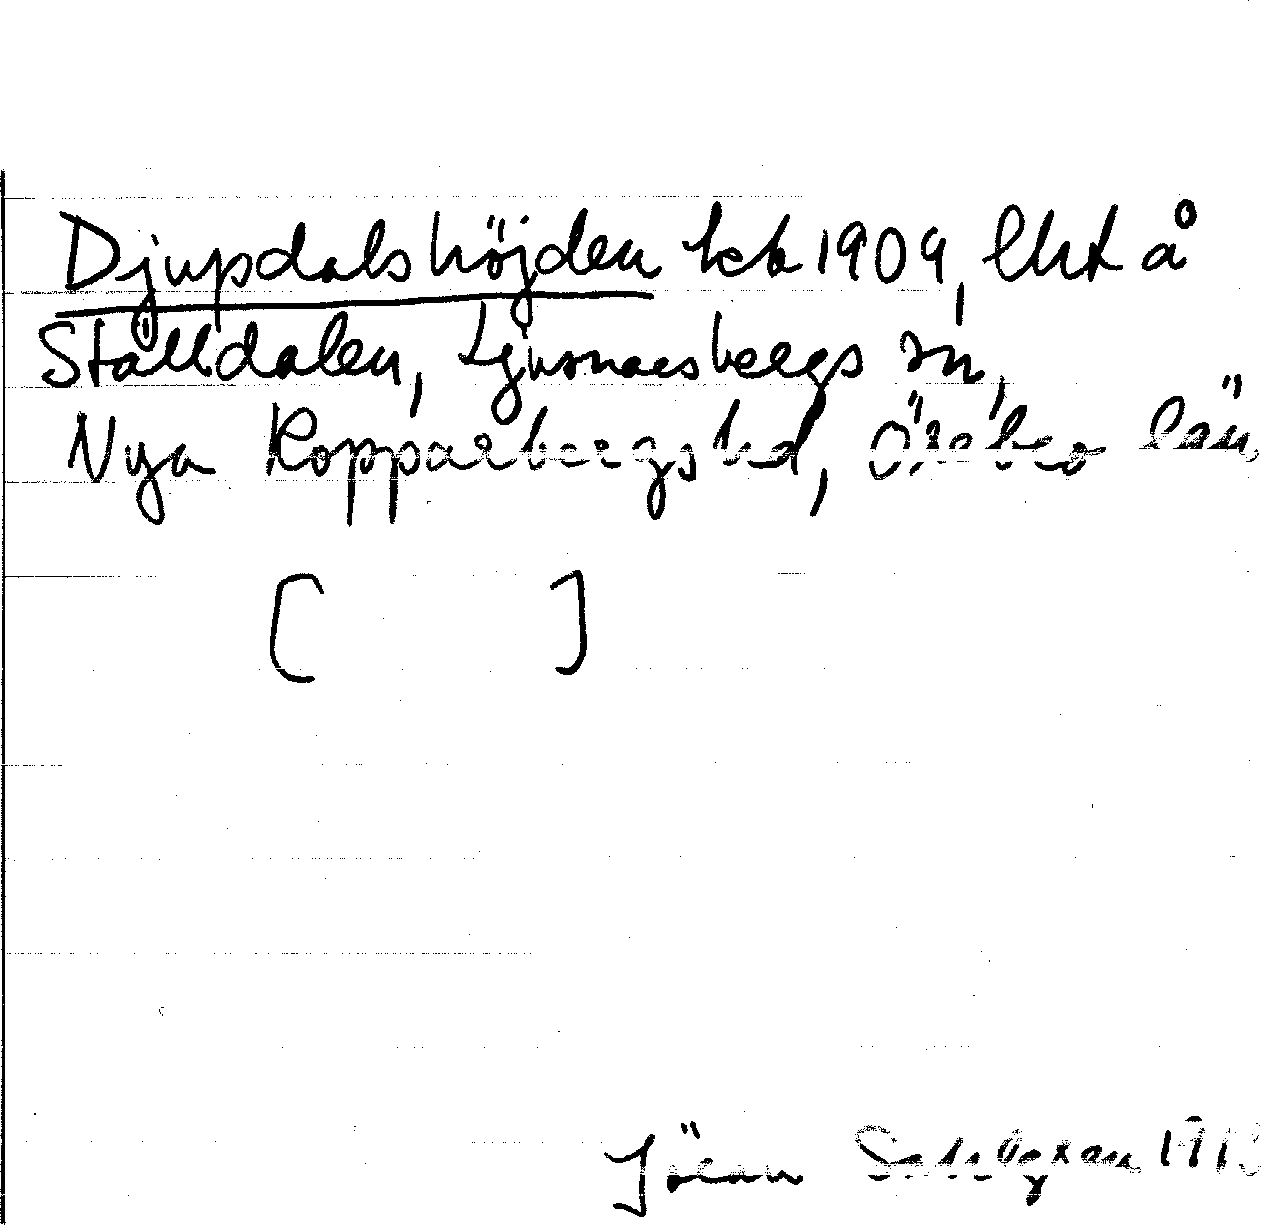 Djupdalshöjden kk 1909, lht å
Ställdalen, Ljusnarsbergs sn,
Nya Kopparbergs hd, Örebro län,
[ ]
Jöran Sahlgren 191